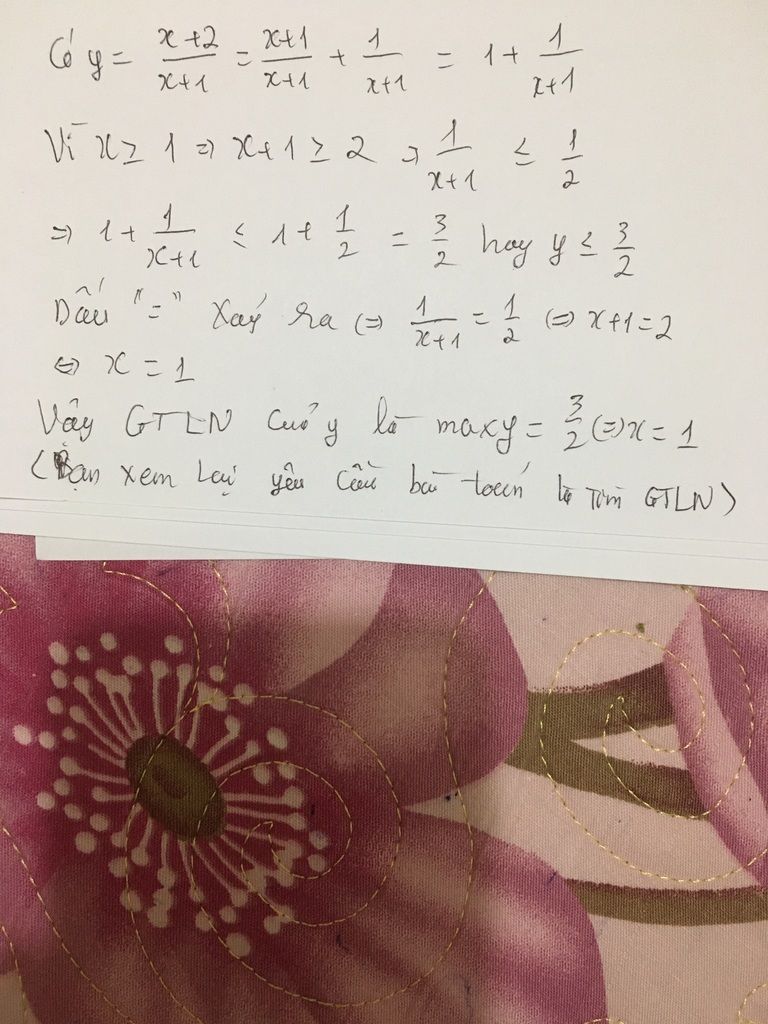 Có y = \frac{x+2}{x+1} = \frac{x+1}{x+1} + \frac{1}{x+1} = 1 + \frac{1}{x+1}
Vì x ≥ 1 ⇒ x+1 ≥ 2 ⇒ \frac{1}{x+1} ≤ \frac{1}{2}
⇒ 1 + \frac{1}{x+1} ≤ 1 + \frac{1}{2} = \frac{3}{2} hay y ≤ \frac{3}{2}
Dấu "=" xảy ra ⇔ \frac{1}{x+1} = \frac{1}{2} ⇔ x+1 = 2
⇔ x = 1
Vậy GTLN của y là max y = \frac{3}{2} ⇔ x = 1
(Bạn xem lại yêu cầu bài toán là Tìm GTLN)